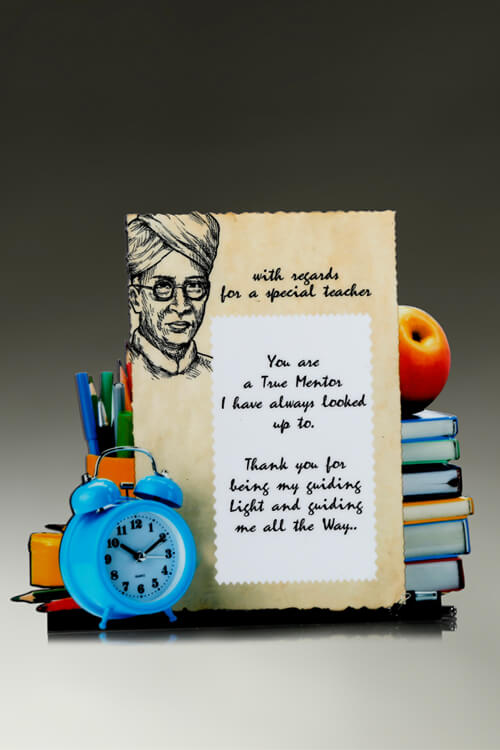 with regards
for a special teacher
You are
a True Mentor
I have always looked
up to.
Thank you for
being my guiding
Light and guiding
me all the Way..
12
1
2
3
4
5
6
7
8
9
10
11
QUARTZ